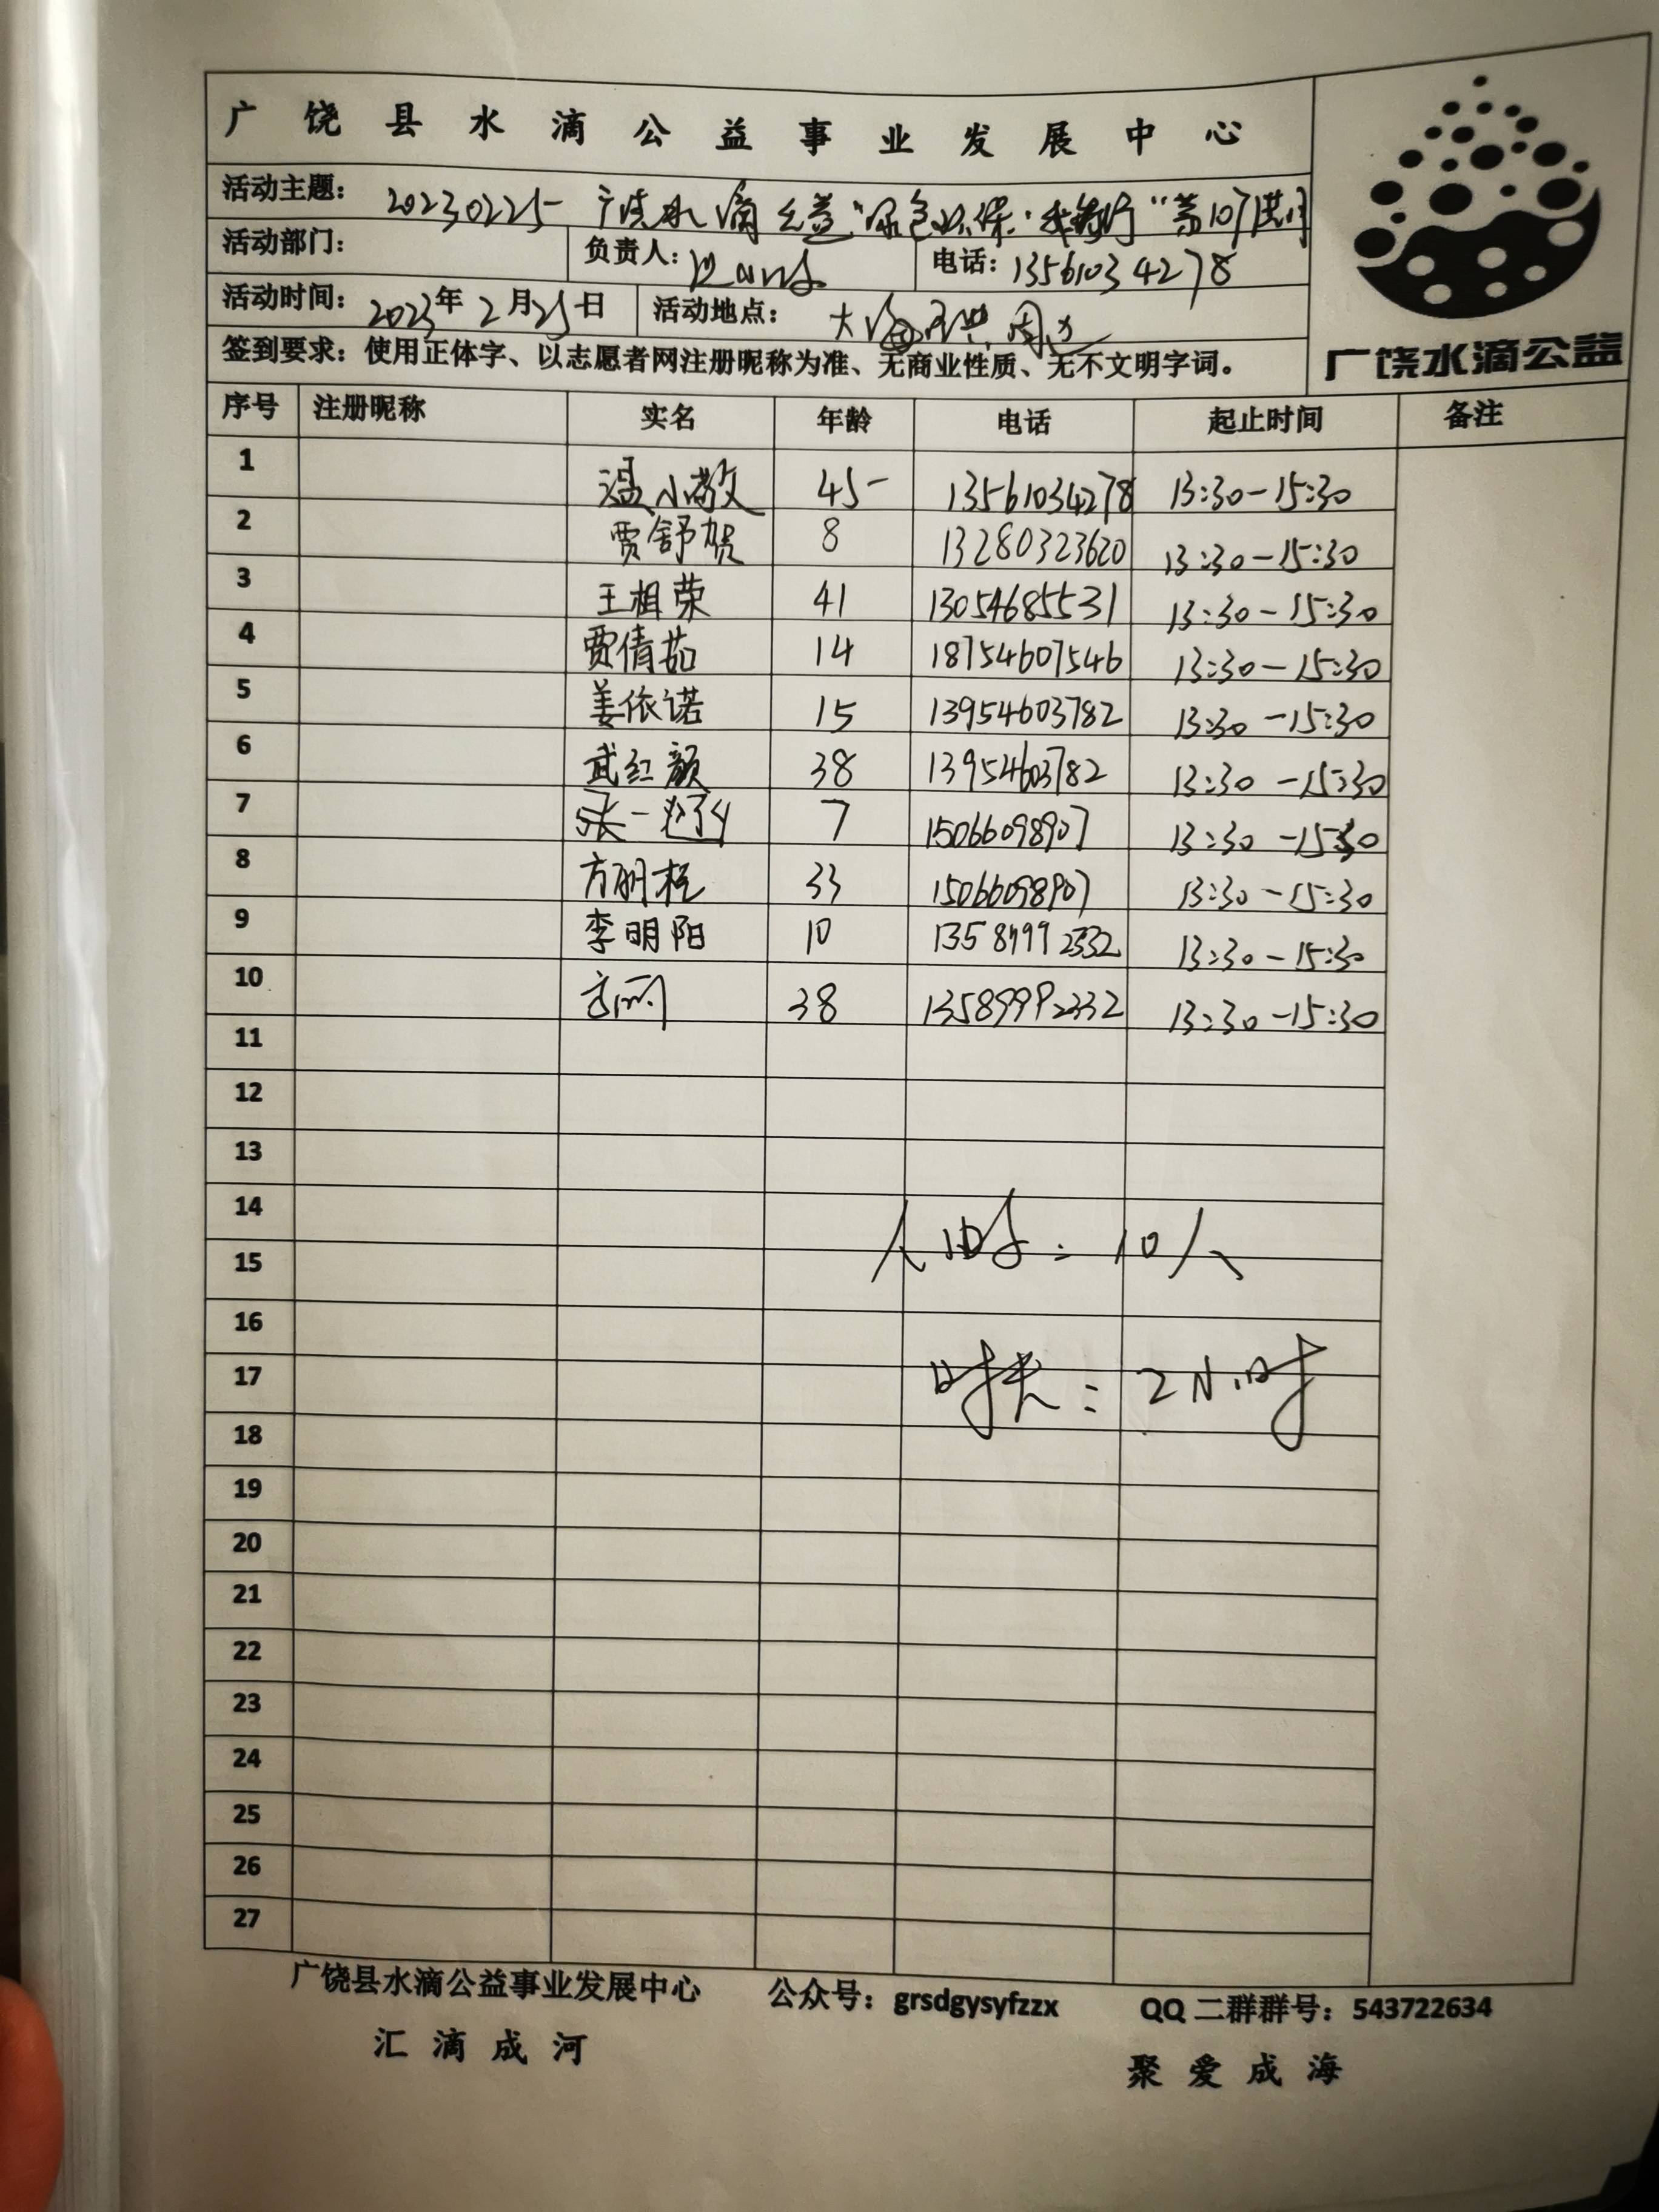 广饶县水滴公益事业发展中心
活动主题: 20230225- 广饶水滴公益"绿色环保·我先行"第107
活动部门: 负责人: 电话: 13561034278
活动时间: 2023年2月25日 活动地点: 大
签到要求: 使用正体字、以志愿者网注册昵称为准、无商业性质、无不文明字词。
广饶水滴公益
序号 注册昵称 实名 年龄 电话 起止时间 备注
1 温小敬 45 13561034278 13:30-15:30
2 贾舒贺 8 13280323620 13:30-15:30
3 王相荣 41 13054685531 13:30-15:30
4 贾倩茹 14 18754607546 13:30-15:30
5 姜依诺 15 13954603782 13:30-15:30
6 武红颜 38 13954603782 13:30-15:30
7 张一 7 15066098907 13:30-15:30
8 方明 33 15066098907 13:30-15:30
9 李明阳 10 13589992332 13:30-15:30
10 38 13589992332 13:30-15:30
11
12
13
14
人 : 10人
15
16
时长: 2小时
17
18
19
20
21
22
23
24
25
26
27
广饶县水滴公益事业发展中心 公众号: grsdgysyfzzx QQ 二群群号: 543722634
汇滴成河 聚爱成海